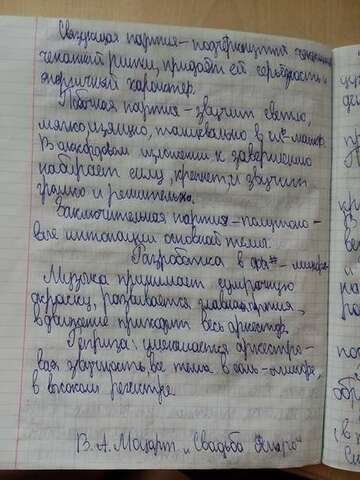 Связующая партия - подчёркивается
чеканный ритм, придаёт ей серьёзность и
энергичный характер.
Побочная партия - звучит светло,
мягко, изящно, танцевально в
В аккордовом изложении к завершению
набирает силу, крепнет и звучит
громко и решительно.
Заключительная партия - полутоно-
вые интонации основной темы.
Разработка в фа# - миноре
Музыка принимает сумрачную
окраску, развивается главная партия,
в движение приходит весь оркестр.
Реприза: уменьшается оркестро-
вая звучность, все темы в соль-миноре,
в высоком регистре
В. А. Моцарт „Свадьба Фигаро"